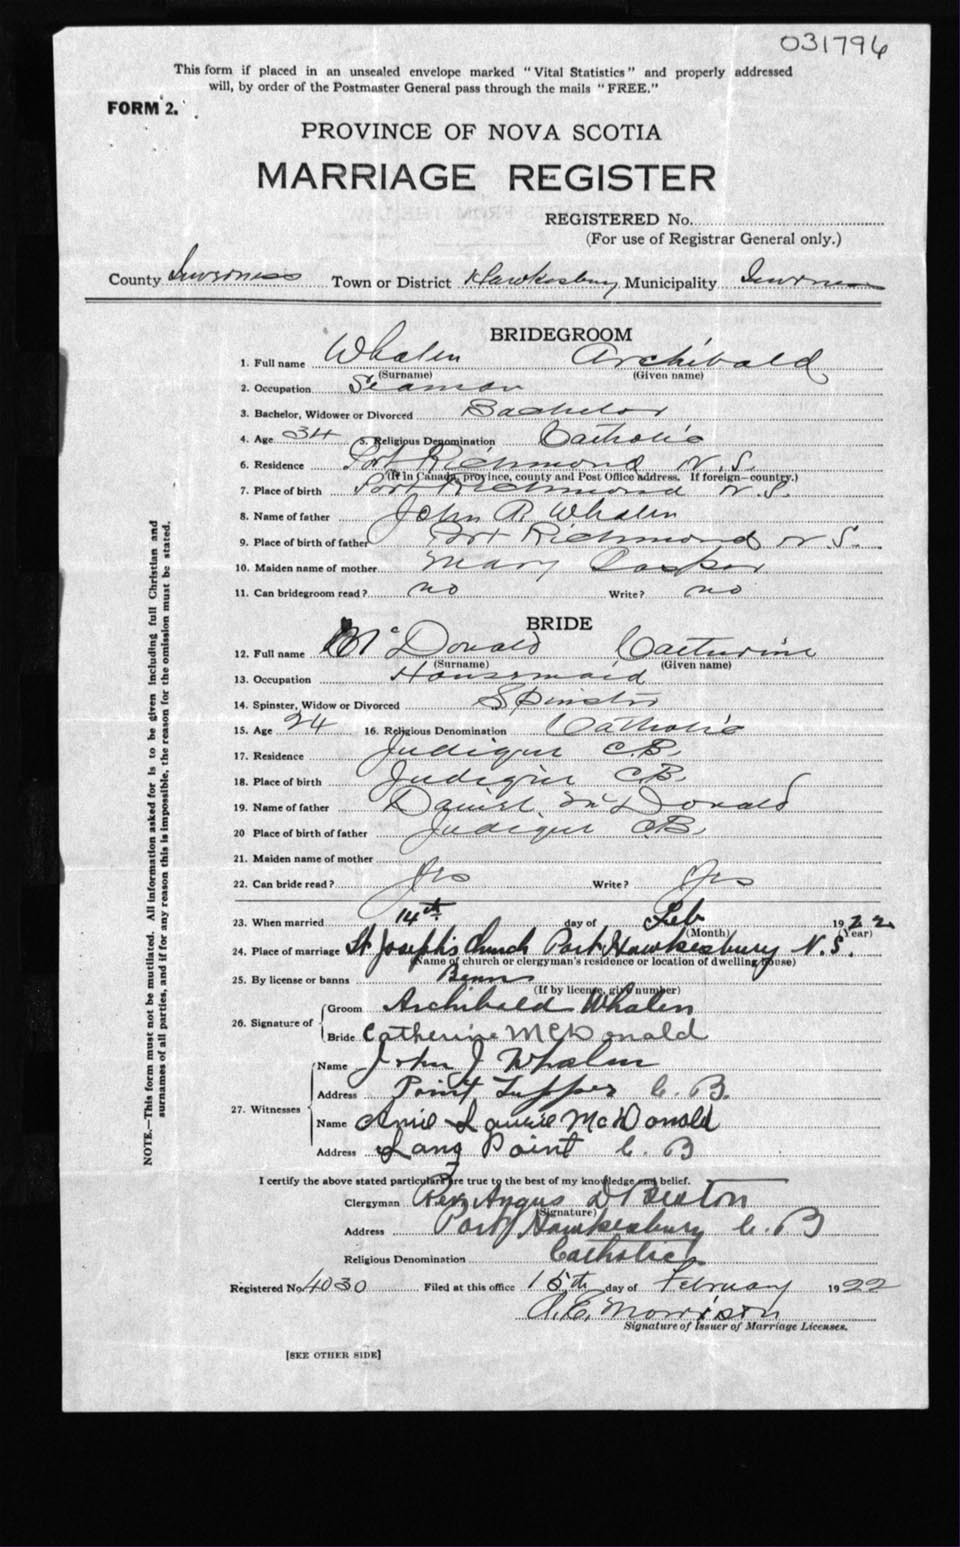 031796
This form if placed in an unsealed envelope marked "Vital Statistics" and properly addressed
will, by order of the Postmaster General pass through the mails "FREE."
FORM 2.
PROVINCE OF NOVA SCOTIA
MARRIAGE REGISTER
REGISTERED No.
(For use of Registrar General only.)
County Inverness Town or District Hawkesbury Municipality Inverness
BRIDEGROOM
1. Full name Whalen Archibald
(Surname) (Given name)
2. Occupation Seaman
3. Bachelor, Widower or Divorced Bachelor
4. Age 34 5. Religious Denomination Catholic
6. Residence Port Richmond N.S.
(If in Canada, province, county and Post Office address. If foreign—country.)
7. Place of birth Port Richmond N.S.
8. Name of father John R Whalen
9. Place of birth of father Port Richmond N.S.
10. Maiden name of mother Mary
11. Can bridegroom read? no Write? no
BRIDE
12. Full name McDonald Catherine
(Surname) (Given name)
13. Occupation Housemaid
14. Spinster, Widow or Divorced Spinster
15. Age 24 16. Religious Denomination Catholic
17. Residence Judique C.B.
18. Place of birth Judique C.B.
19. Name of father Daniel McDonald
20 Place of birth of father Judique C.B.
21. Maiden name of mother
22. Can bride read? Yes Write? Yes
23. When married 14th day of Feb 1922
(Month) (Year)
24. Place of marriage St Joseph's Church Port Hawkesbury N.S.
(Name of church or clergyman's residence or location of dwelling house)
25. By license or banns
(If by license, give number)
26. Signature of Groom Archibald Whalen
Bride Catherine McDonald
27. Witnesses Name John J Whalen
Address Point Tupper C.B.
Name Annie Laurie McDonald
Address Long Point C.B
I certify the above stated particulars are true to the best of my knowledge and belief.
Clergyman Rev Angus D Beaton
(Signature)
Address Port Hawkesbury C.B
Religious Denomination Catholic
Registered No. 4030 Filed at this office 15th day of February 1922
A.E. Morrison
Signature of Issuer of Marriage Licenses.
[SEE OTHER SIDE]
NOTE.—This form must not be mutilated. All information asked for is to be given including full Christian and
surnames of all parties, and if for any reason this is impossible, the reason for the omission must be stated.